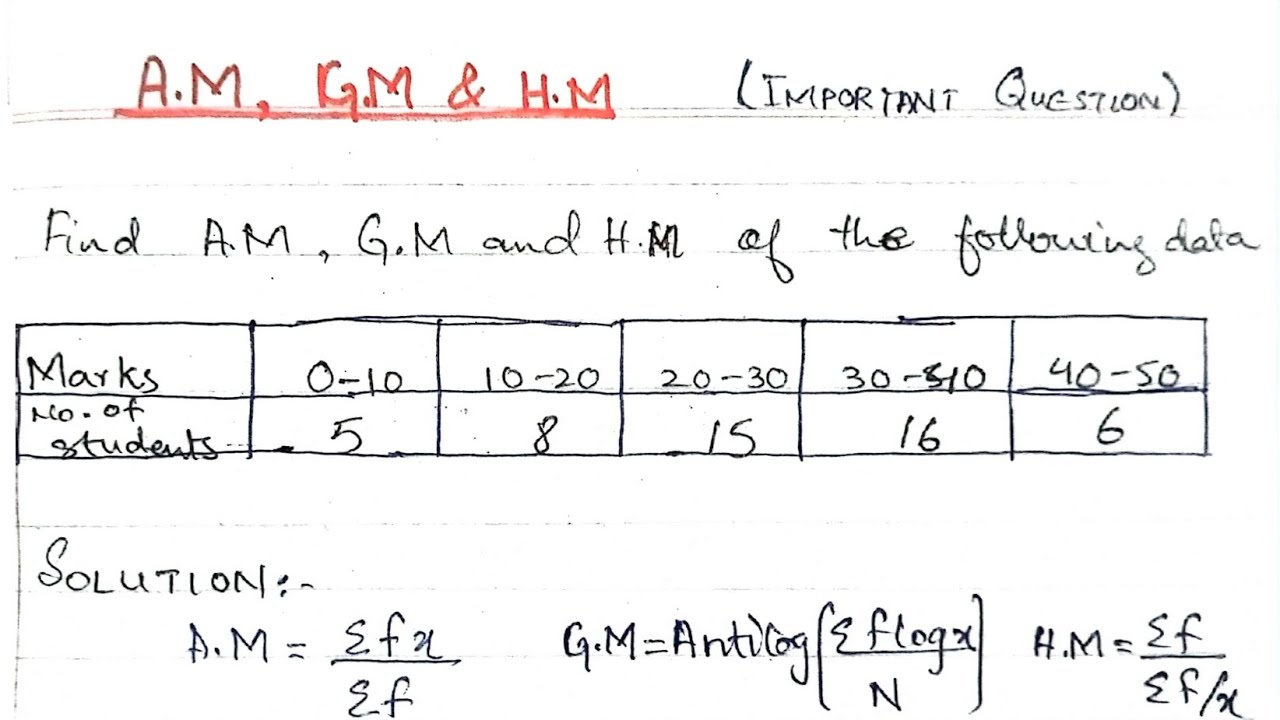 A.M, G.M & H.M (IMPORTANT QUESTION)
Find A.M, G.M and H.M of the following data
Marks 0-10 10-20 20-30 30-40 40-50
No. of students 5 8 15 16 6
SOLUTION:-
A.M = Σfx/Σf G.M=Antilog[Σflogx/N] H.M=Σf/Σf/x